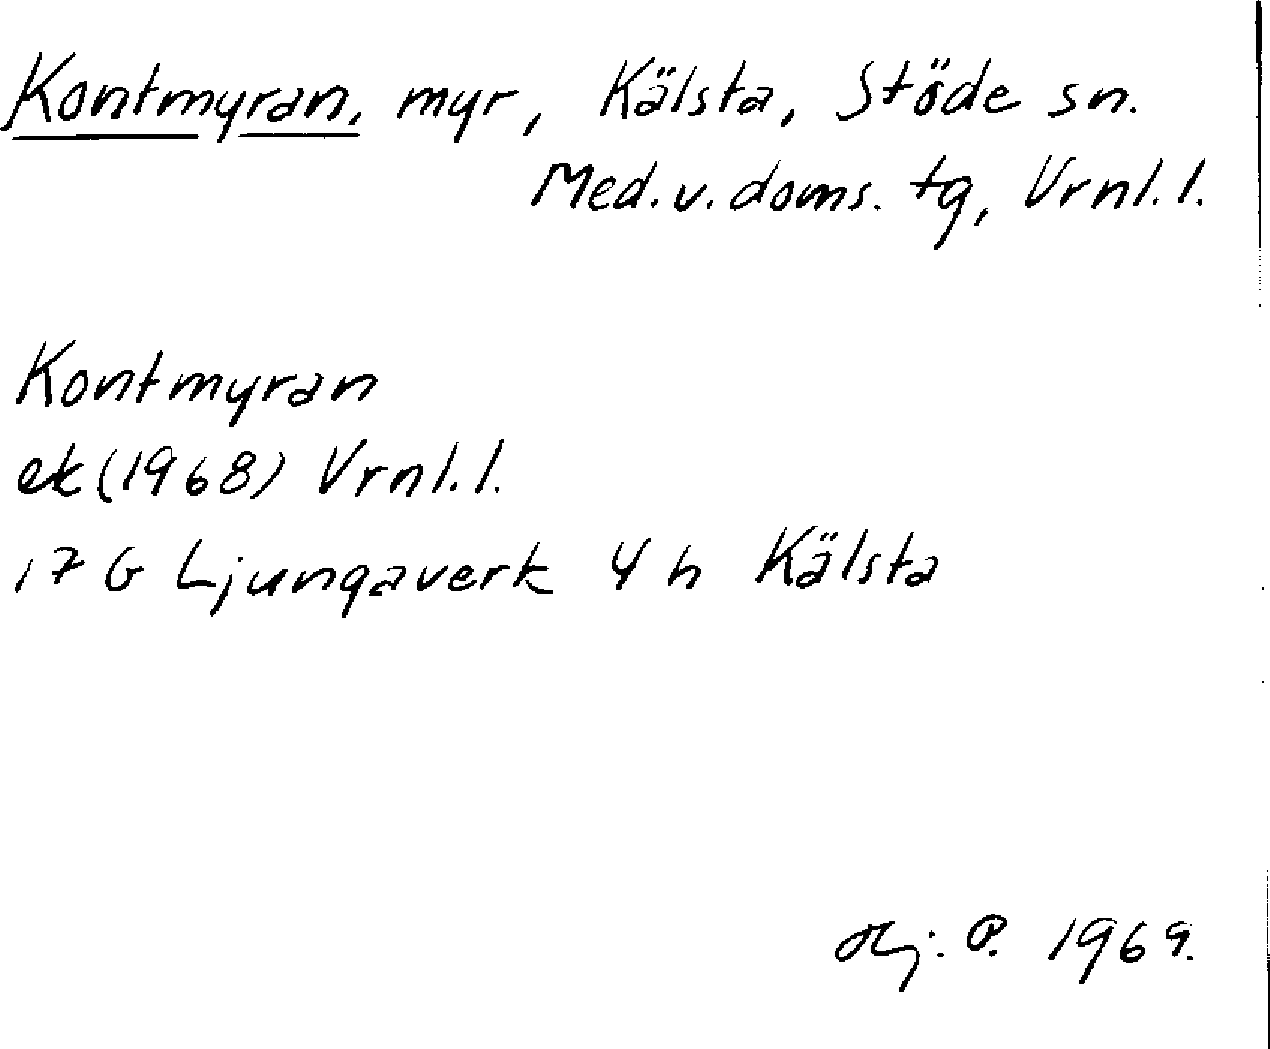 Kontmyran, myr, Kälsta, Stöde sn.
Med. v. doms. tg, Vrnl. l.
Kontmyran
ek (1968) Vrnl. l.
17 G Ljungaverk 4 h Kälsta
Hj. P. 1969.